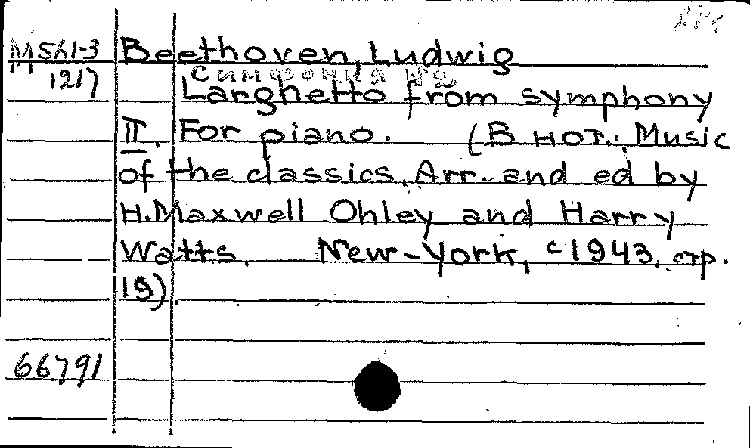 М 561-3 Beethoven, Ludwig
1217 Симфония №2
Larghetto from symphony
II. For piano. (В нот.: Music
of the classics. Arr. and ed by
H. Maxwell Ohley and Harry
Watts. New-York, c 1943, стр.
19).
66791